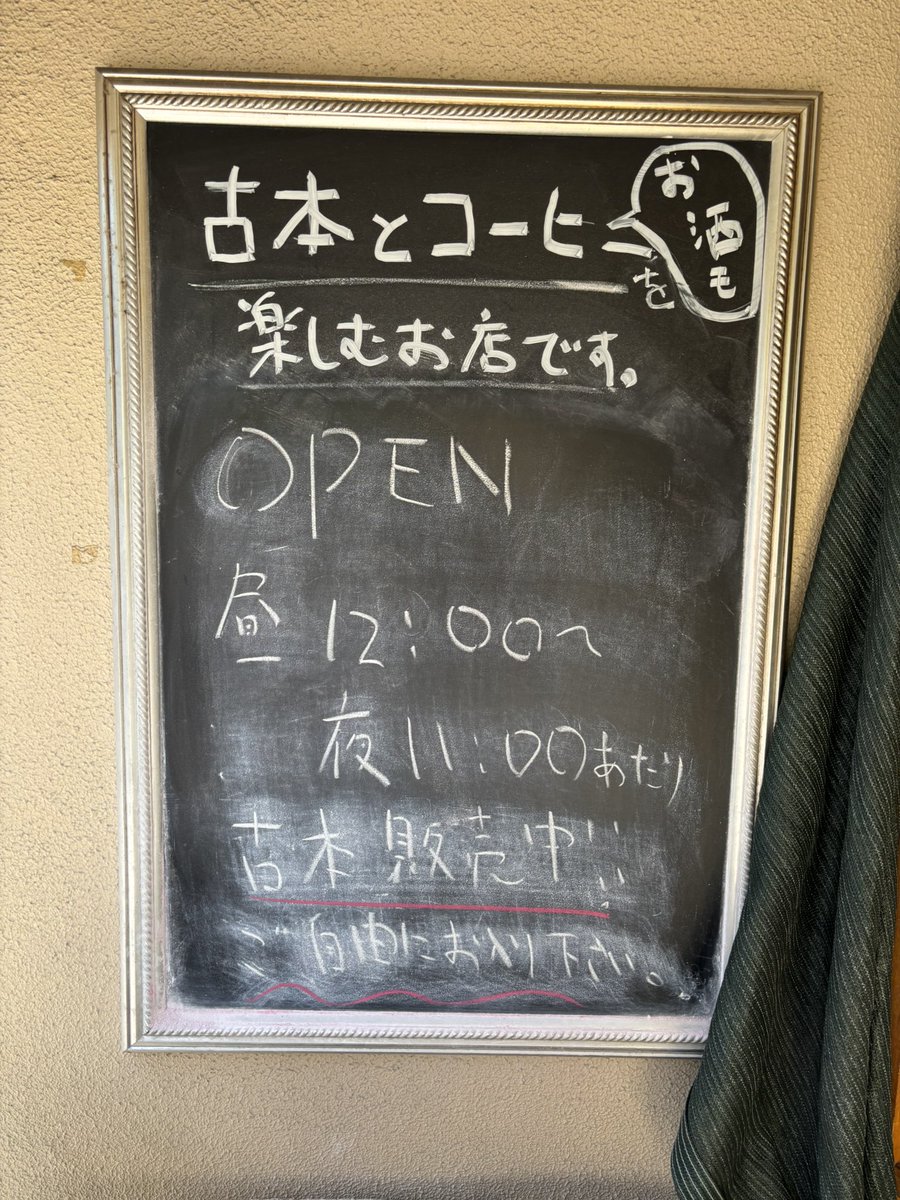 古本とコーヒーを
お酒も
楽しむお店です。
OPEN
昼 12:00〜
夜11:00あたり
古本 販売中!!
ご自由にお入り下さい。